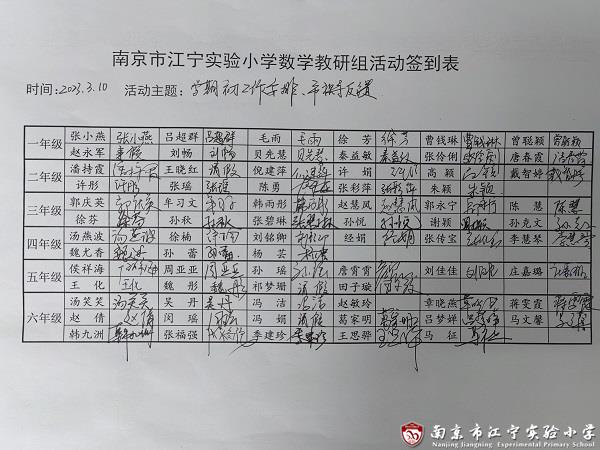 南京市江宁实验小学数学教研组活动签到表
时间:2023.3.10 活动主题:学期初工作安排、
一年级 张小燕 张小燕 吕超群 吕超群 毛雨 毛雨 徐芳 徐芳 曹钱琳 曹钱琳 曾聪颖 曾聪颖
赵永军 请假 刘畅 刘畅 贝先慧 贝先慧 秦益敏 秦益敏 张伶俐 唐春霞 唐春霞
二年级 潘持霞 王晓红 请假 倪建萍 倪建萍 许娟 高颖 戴智婷 戴智婷
许彤 许彤 张瑶 张瑶 陈勇 张彩萍 张彩萍 朱颖 朱颖
三年级 郭庆英 牟习文 韩雨彤 赵慧凤 赵慧凤 郭永宁 陈慧 陈慧
徐芬 徐芬 孙秋 孙秋 张碧琳 张碧琳 孙悦 孙悦 谢颖 孙克文
四年级 汤燕波 徐楠 徐楠 刘铭卿 经娟 经娟 张传宝 李慧琴 李慧琴
魏尤香 孙蕾 杨芸 杨芸
五年级 侯祥海 周亚亚 周亚亚 孙瑶 孙瑶 詹霄霄 刘佳佳 刘佳佳 庄嘉璐
王化 王化 魏彤 魏彤 祁梦珊 请假 田子璇 田子璇
六年级 汤笑笑 汤笑笑 吴丹 吴丹 冯洁 冯洁 赵敏玲 章晓燕 章晓燕 蒋雯霞 蒋雯霞
赵倩 赵倩 闵瑶 闵瑶 冯娟 请假 葛家明 葛家明 吕梦婵 吕梦婵 马文馨
韩九洲 韩九洲 张福强 张福强 季建珍 季建珍 王思骅 马征 马征
南京市江宁实验小学
Nanjing Jiangning Experimental Primary School